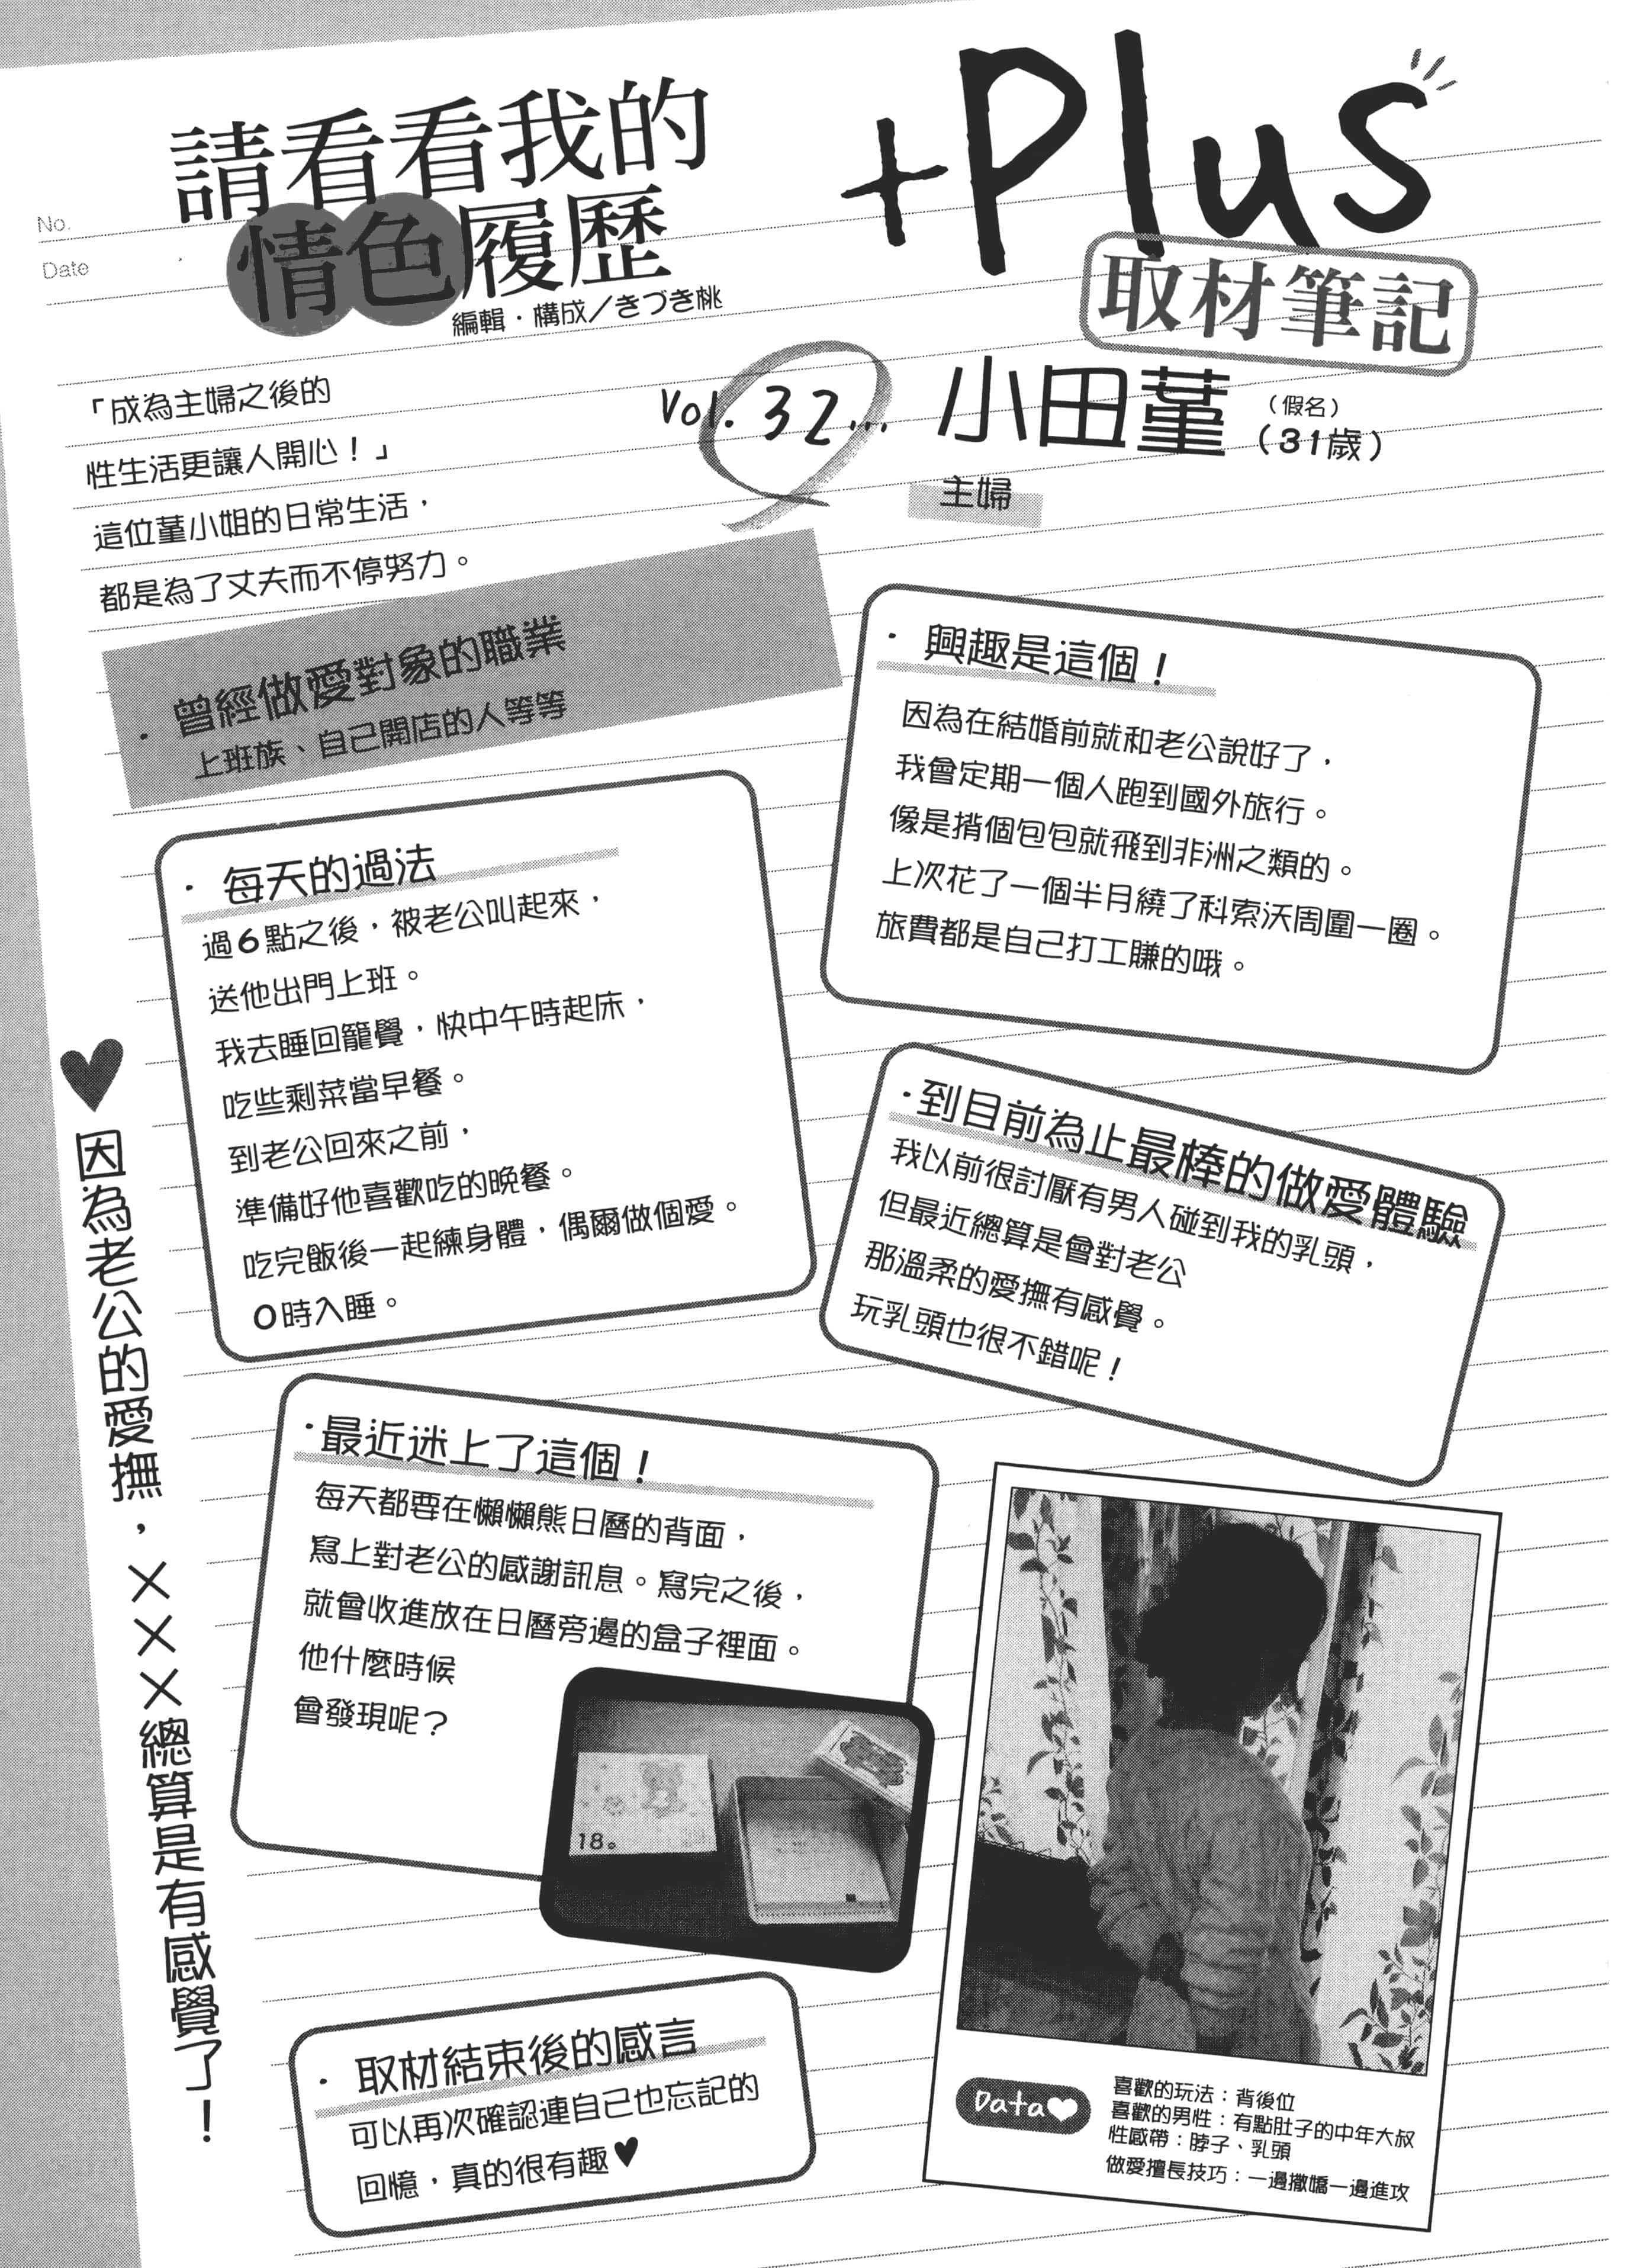 No.
Date
請看看我的
情色履歷
編輯・構成／きづき桃
+Plus
取材筆記
Vol. 32...
小田菫
（假名）
（31歲）
主婦
「成為主婦之後的
性生活更讓人開心！」
這位菫小姐的日常生活，
都是為了丈夫而不停努力。
・曾經做愛對象的職業
上班族、自己開店的人等等
・興趣是這個！
因為在結婚前就和老公說好了，
我會定期一個人跑到國外旅行。
像是揹個包包就飛到非洲之類的。
上次花了一個半月繞了科索沃周圍一圈。
旅費都是自己打工賺的哦。
・每天的過法
過6點之後，被老公叫起來，
送他出門上班。
我去睡回籠覺，快中午時起床，
吃些剩菜當早餐。
到老公回來之前，
準備好他喜歡吃的晚餐。
吃完飯後一起練身體，偶爾做個愛。
0時入睡。
・到目前為止最棒的做愛體驗
我以前很討厭有男人碰到我的乳頭，
但最近總算是會對老公
那溫柔的愛撫有感覺。
玩乳頭也很不錯呢！
♥因為老公的愛撫，×××總算是有感覺了！
・最近迷上了這個！
每天都要在懶懶熊日曆的背面，
寫上對老公的感謝訊息。寫完之後，
就會收進放在日曆旁邊的盒子裡面。
他什麼時候
會發現呢？
18。
・取材結束後的感言
可以再次確認連自己也忘記的
回憶，真的很有趣♥
Data♥
喜歡的玩法：背後位
喜歡的男性：有點肚子的中年大叔
性感帶：脖子、乳頭
做愛擅長技巧：一邊撒嬌一邊進攻